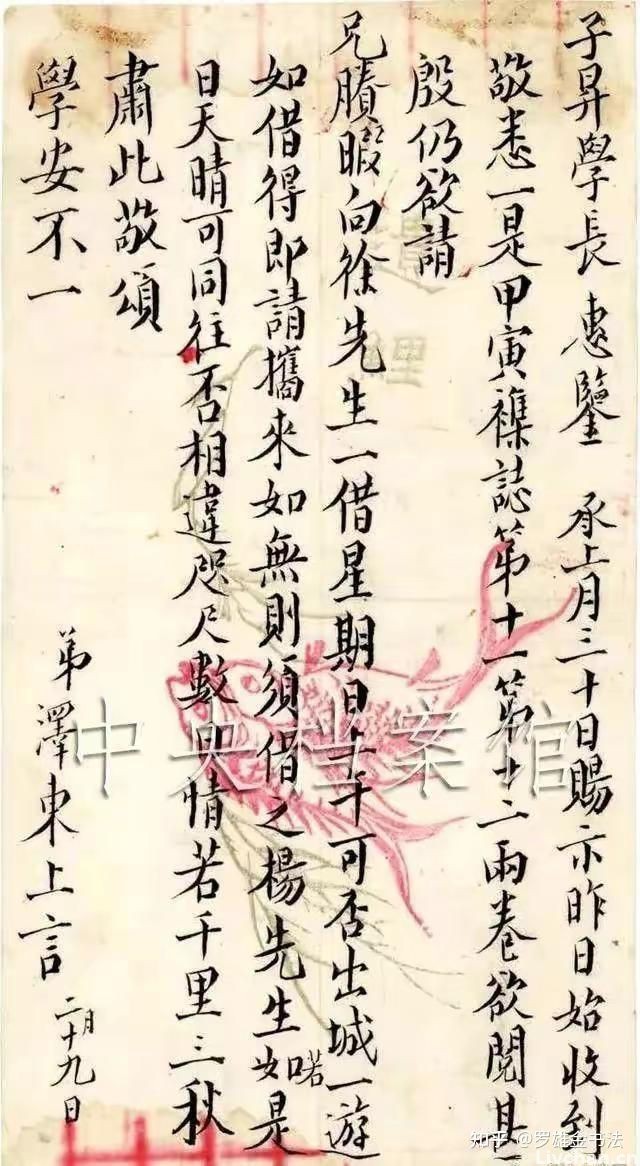 子昇學長 惠鑒 承上月三十日賜示昨日始收到
敬悉一是甲寅襍誌第十一第十二兩卷欲閱甚
殷仍欲請
兄賸暇向徐先生一借星期日上午可否出城一遊
如借得即請攜來如無則須借之楊先生如喏是
日天晴可同往否相違咫尺數日情若千里三秋
肅此敬頌
學安不一
弟澤東上言 二月十九日
中央档案馆
知乎 @罗雄金书法